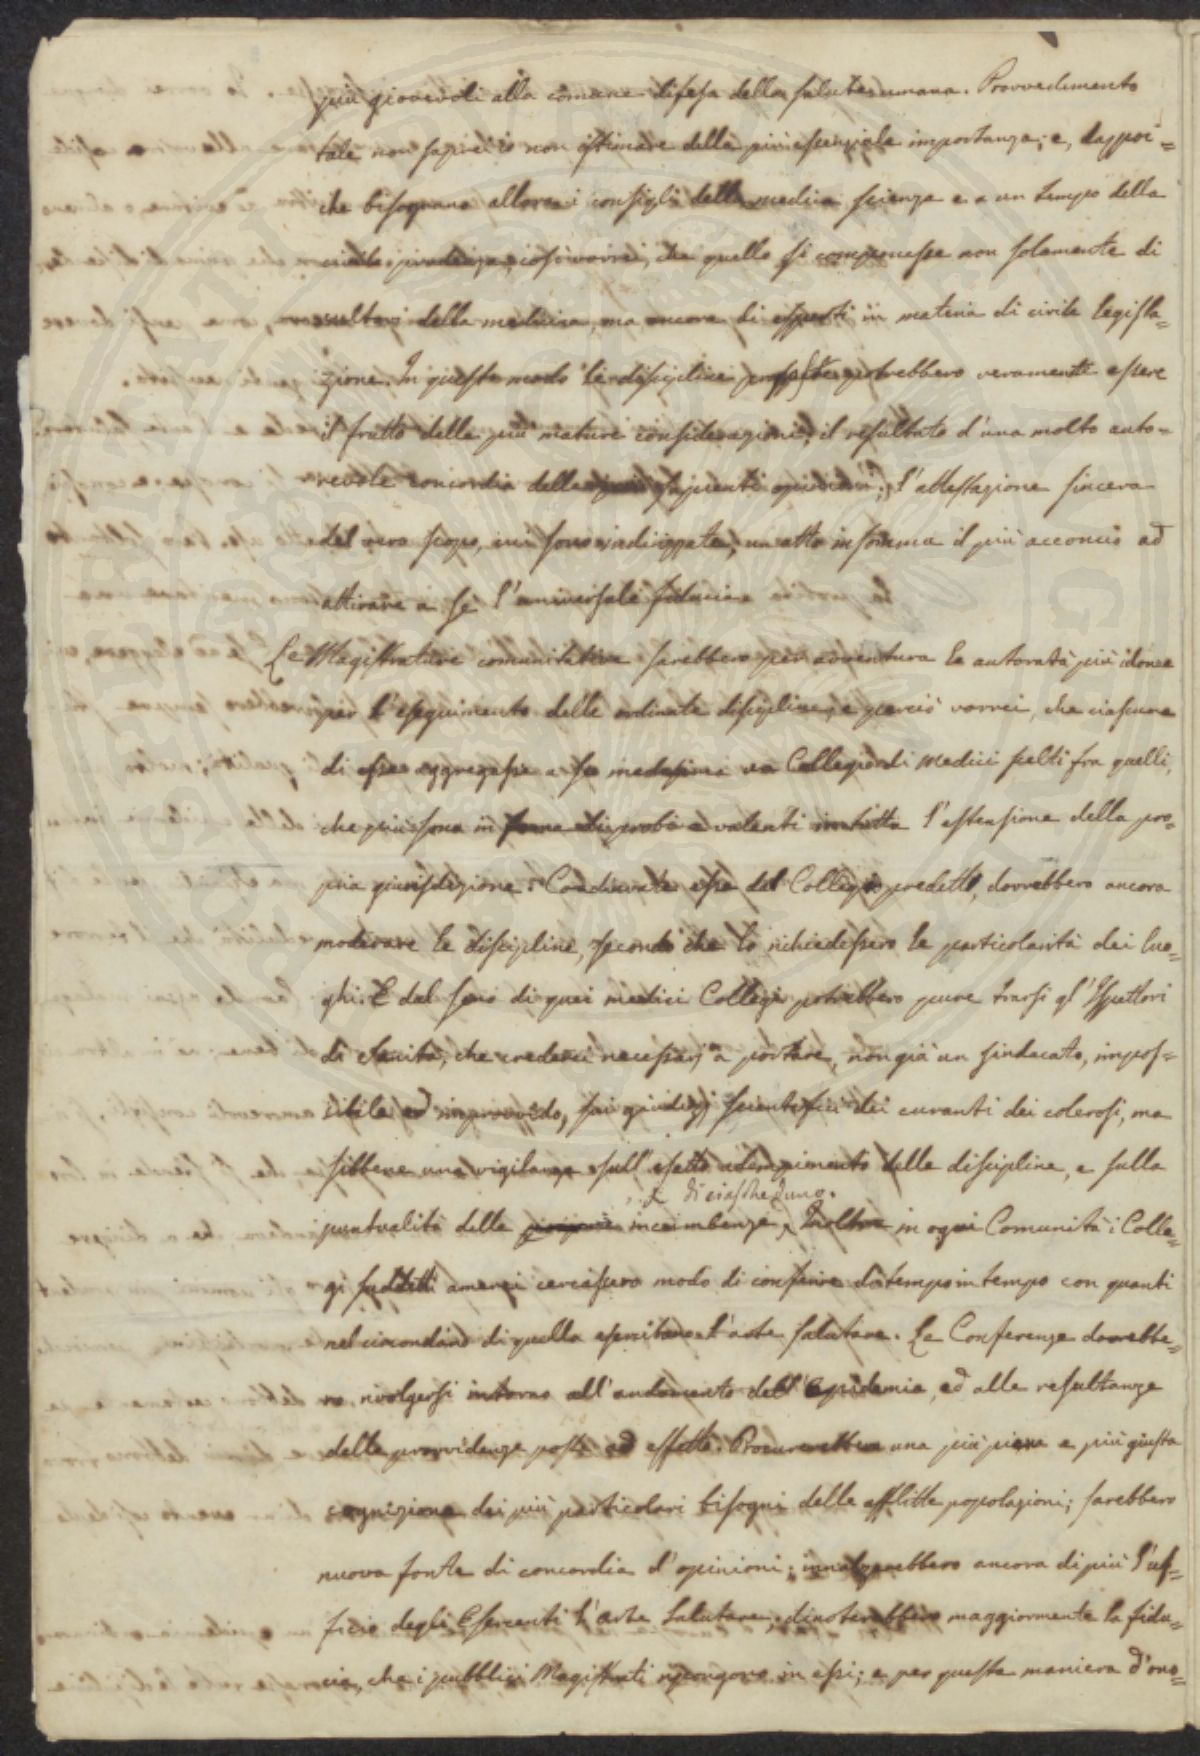 più giovevoli alla comune difesa della salute umana. Provvedimento
tale non saprei io non istimare della più essenziale importanza; e, dappoi=
che bisognano allora i consigli della medica scienza e a un tempo della
civile prudenza, così vorrei, che quello si componesse non solamente di
cultori della medicina, ma ancora di esperti in materia di civile legisla=
zione. In questo modo le discipline potrebbero veramente essere
il frutto delle più mature considerazioni, il resultato d'una molto auto=
revole concordia delle opinioni; l'attestazione sincera
del vero scopo, cui sono indirizzate, un atto insomma il più acconcio ad
attirare a sé l'universale fiducia.
Le Magistrature comunitative sarebbero per avventura le autorità più idonee
per l'eseguimento delle ordinate discipline, e perciò vorrei, che ciascuna
di esse aggregasse a se medesima un Collegio di Medici scelti fra quelli,
che più sono in fama di probi e valenti in tutta l'estensione della pro=
pria giurisdizione. Coadiuvate esse dal Collegio predetto, dovrebbero ancora
moderare le discipline, secondo che lo richiedessero le particolarità dei luo=
ghi. E dal seno di quei medici Collegi potrebbero pure trarsi gl'Ispettori
di Sanità, che crederei necessarj a portare, non già un sindacato, impos=
sibile ed improvvido, sui giudizj scientifici dei curanti dei colerosi, ma
sibbene una vigilanza sull'esatto adempimento delle discipline, e sulla
di ciascheduno.
puntualità delle incumbenze. Inoltre in ogni Comunità i Colle=
gi suddetti amerei cercassero modo di conferire di tempo in tempo con quanti
nel circondario di quella esercitano l'arte salutare. Le Conferenze dovrebbe=
ro rivolgersi intorno all'andamento dell'epidemia, ed alle resultanze
delle provvidenze poste ad effetto. Procurerebbero una più piena e più giusta
cognizione dei più particolari bisogni delle afflitte popolazioni; sarebbero
nuova fonte di concordia d'opinioni; innalzerebbero ancora di più l'uf=
ficio degli Esercenti l'arte Salutare; dinoterebbero maggiormente la fidu=
cia, che i pubblici Magistrati ripongono in essi; e per questa maniera d'ono=